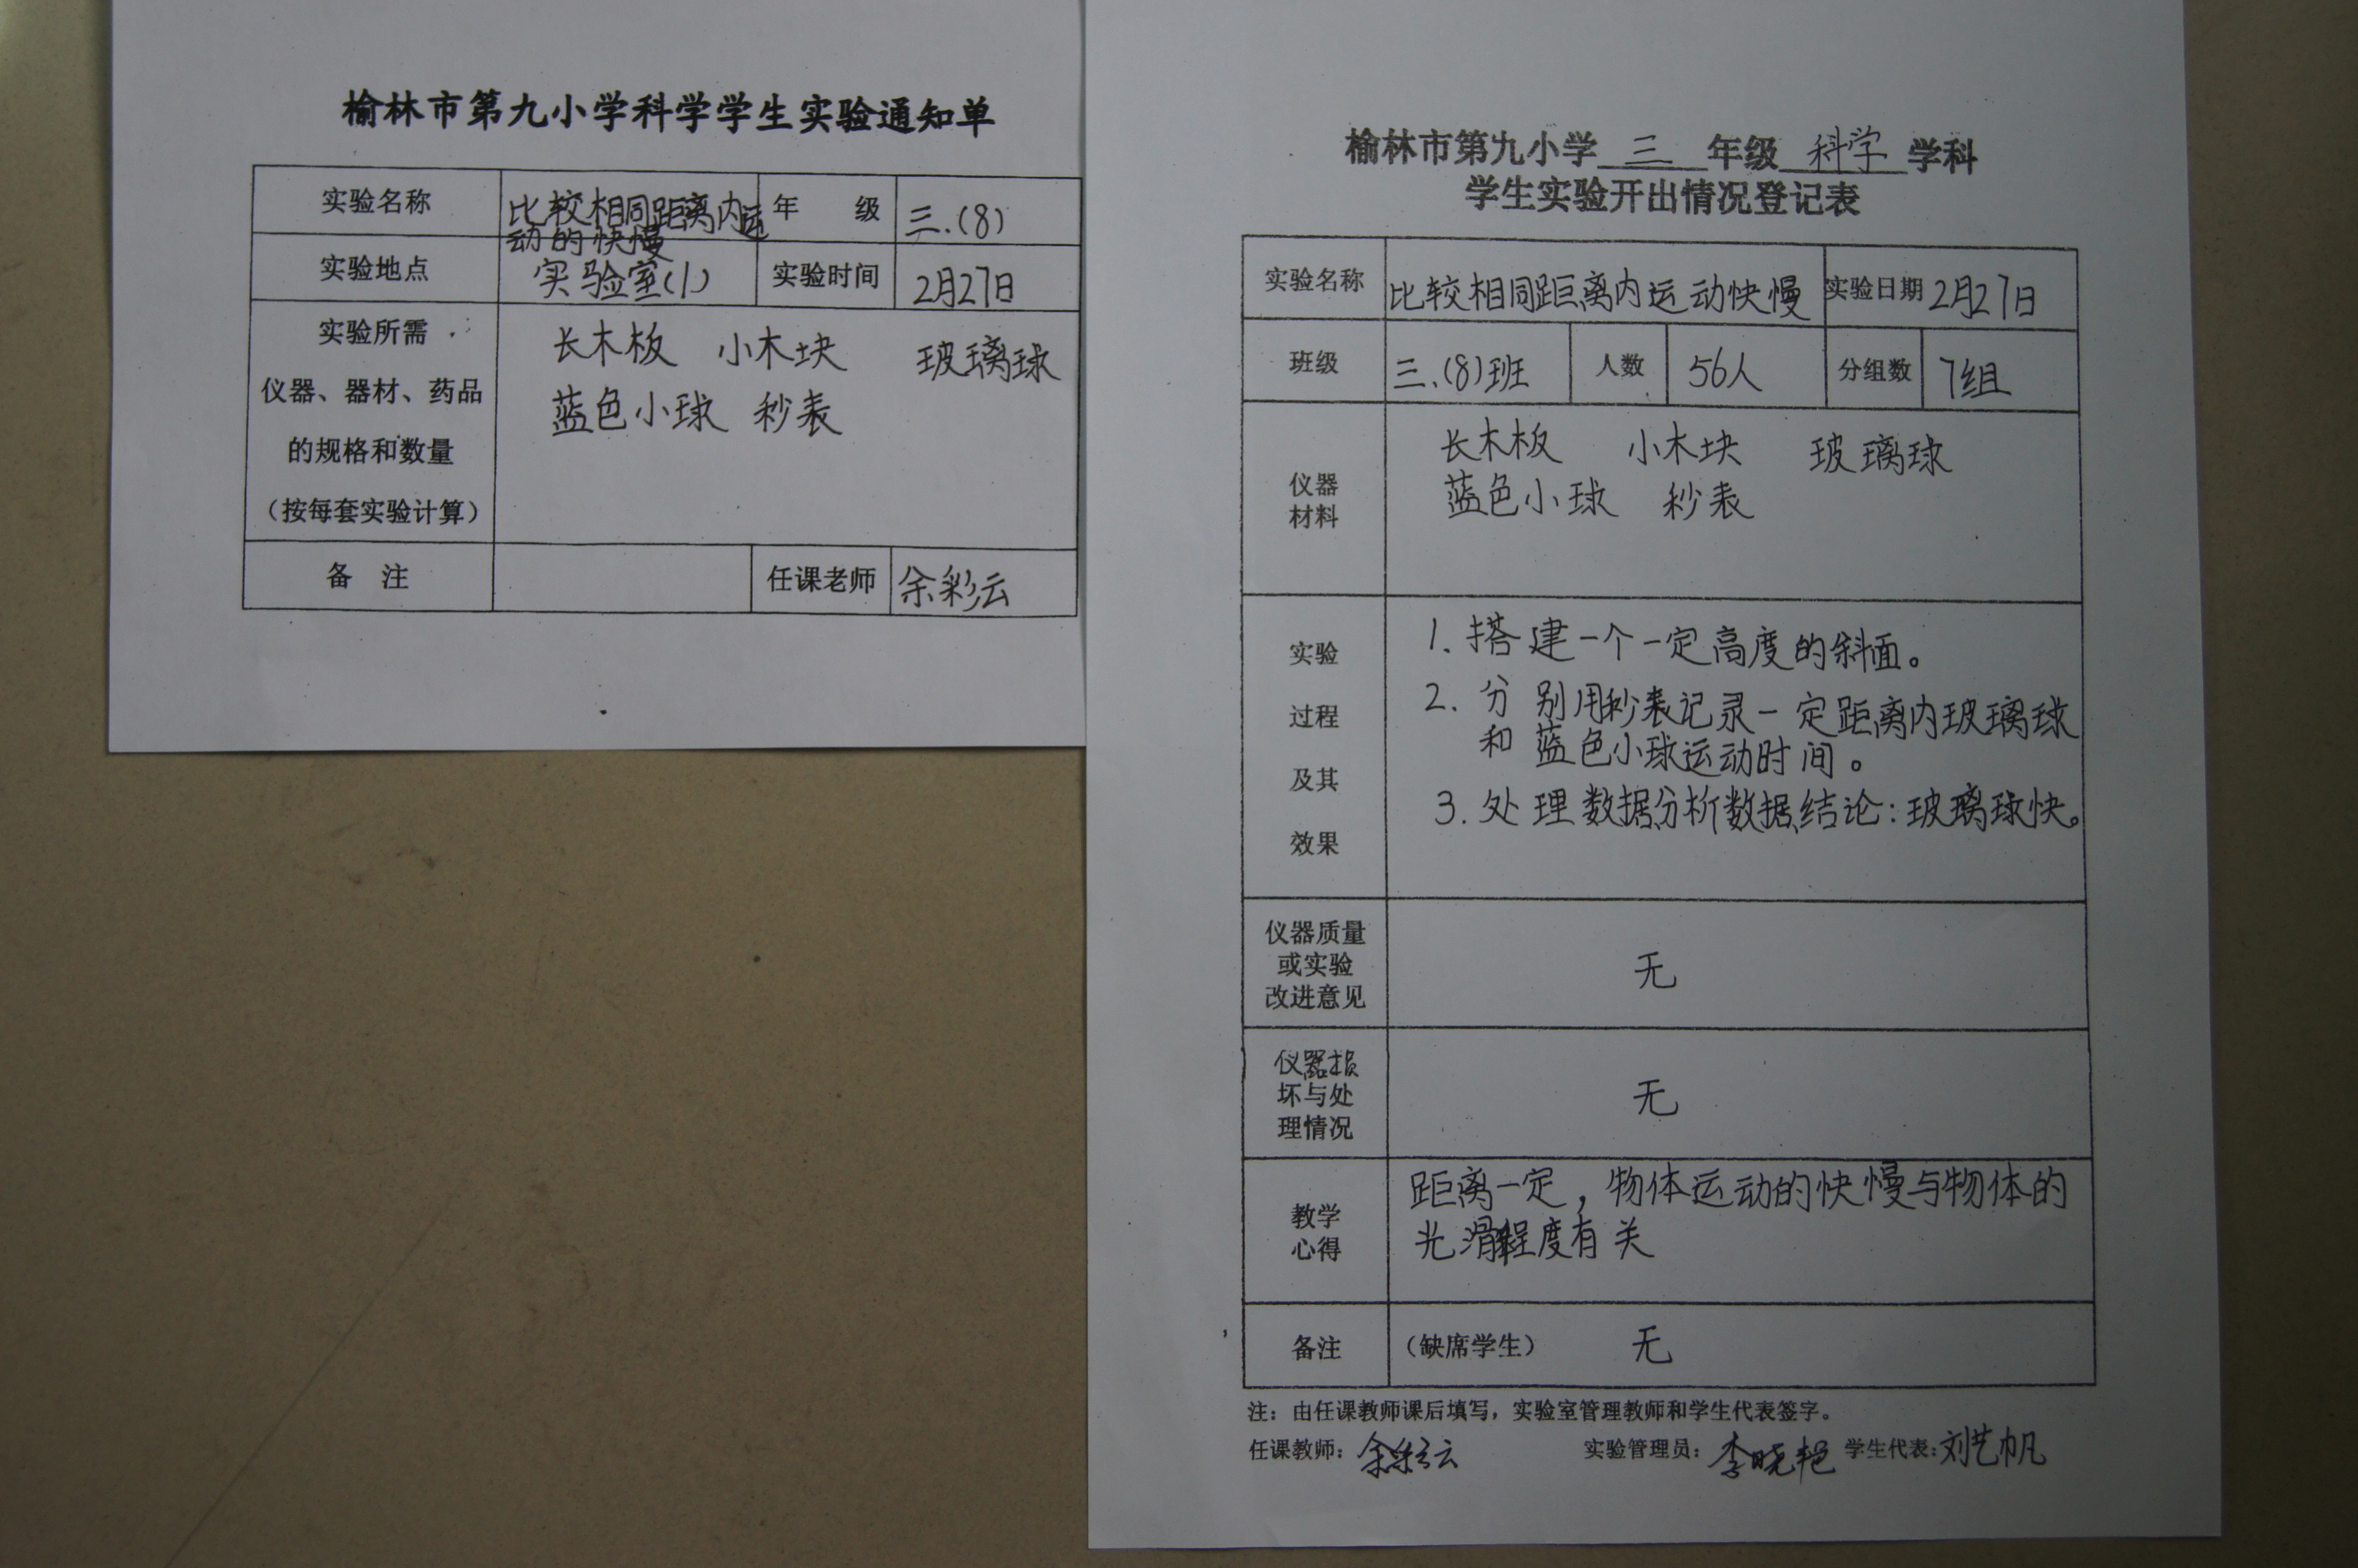 榆林市第九小学科学学生实验通知单
实验名称 比较相同距离内运动的快慢 年 级 三.(8)
实验地点 实验室(1) 实验时间 2月27日
实验所需
仪器、器材、药品
的规格和数量
（按每套实验计算）
长木板 小木块 玻璃球
蓝色小球 秒表
备 注 任课老师 余彩云
榆林市第九小学 三 年级 科学 学科
学生实验开出情况登记表
实验名称 比较相同距离内运动快慢 实验日期 2月27日
班级 三.(8)班 人数 56人 分组数 7组
仪器
材料
长木板 小木块 玻璃球
蓝色小球 秒表
实验
过程
及其
效果
1. 搭建一个一定高度的斜面。
2. 分别用秒表记录一定距离内玻璃球
和蓝色小球运动时间。
3. 处理数据分析数据结论：玻璃球快。
仪器质量
或实验
改进意见
无
仪器损
坏与处
理情况
无
教学
心得
距离一定，物体运动的快慢与物体的
光滑程度有关
备注 （缺席学生） 无
注：由任课教师课后填写，实验室管理教师和学生代表签字。
任课教师：余彩云 实验管理员：李晓艳 学生代表：刘艺帆